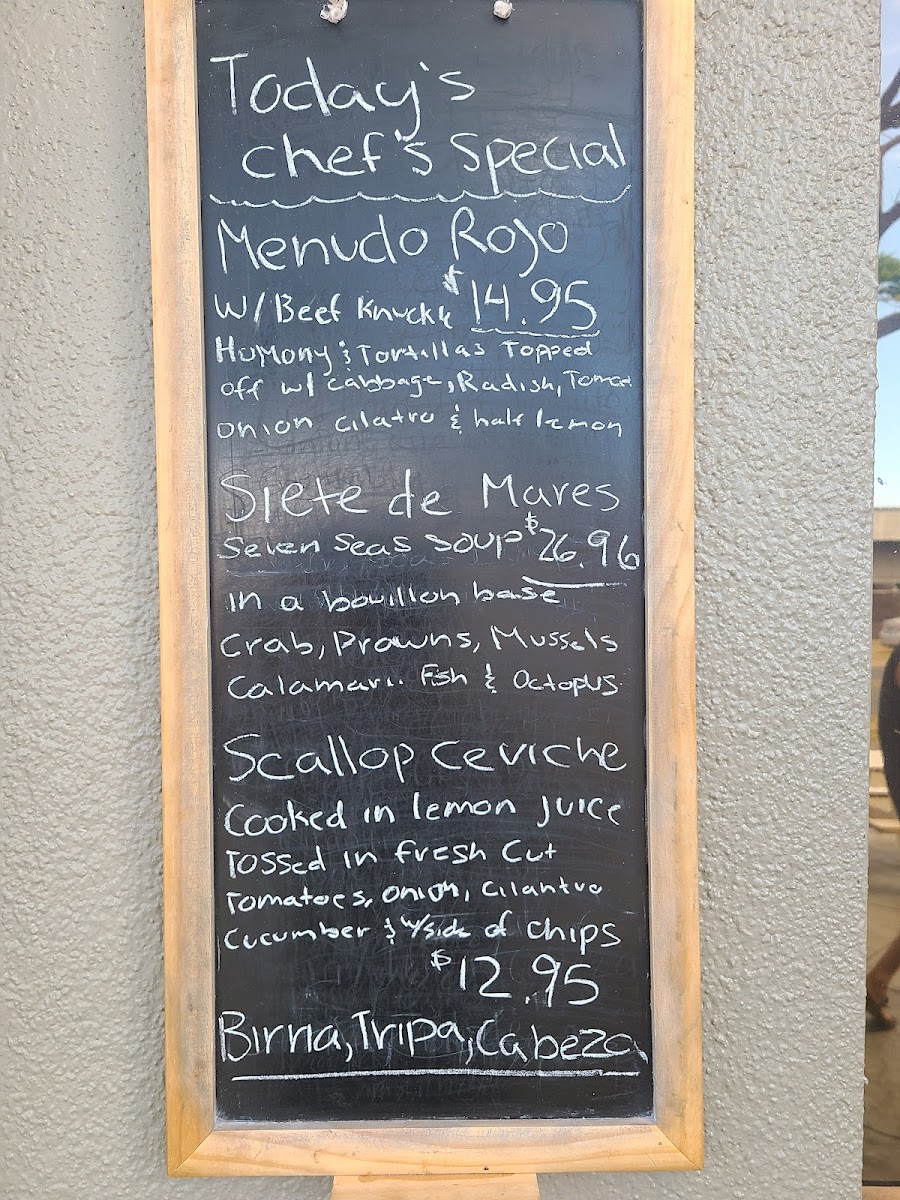 Today's
chef's Special
Menudo Rojo
W/Beef Knuckle $14.95
Humony & Tortillas Topped
off w/ cabbage, Radish, Tomat
onion cilatro & half lemon
Siete de Mares
Seven Seas Soup $26.96
in a bouillon base
Crab, Prawns, Mussels
Calamari. Fish & Octopus
Scallop Ceviche
Cooked in lemon Juice
Tossed in fresh Cut
Tomatoes, onion, cilantro
Cucumber & w/side of chips
$12.95
Birria, Tripa, Cabeza